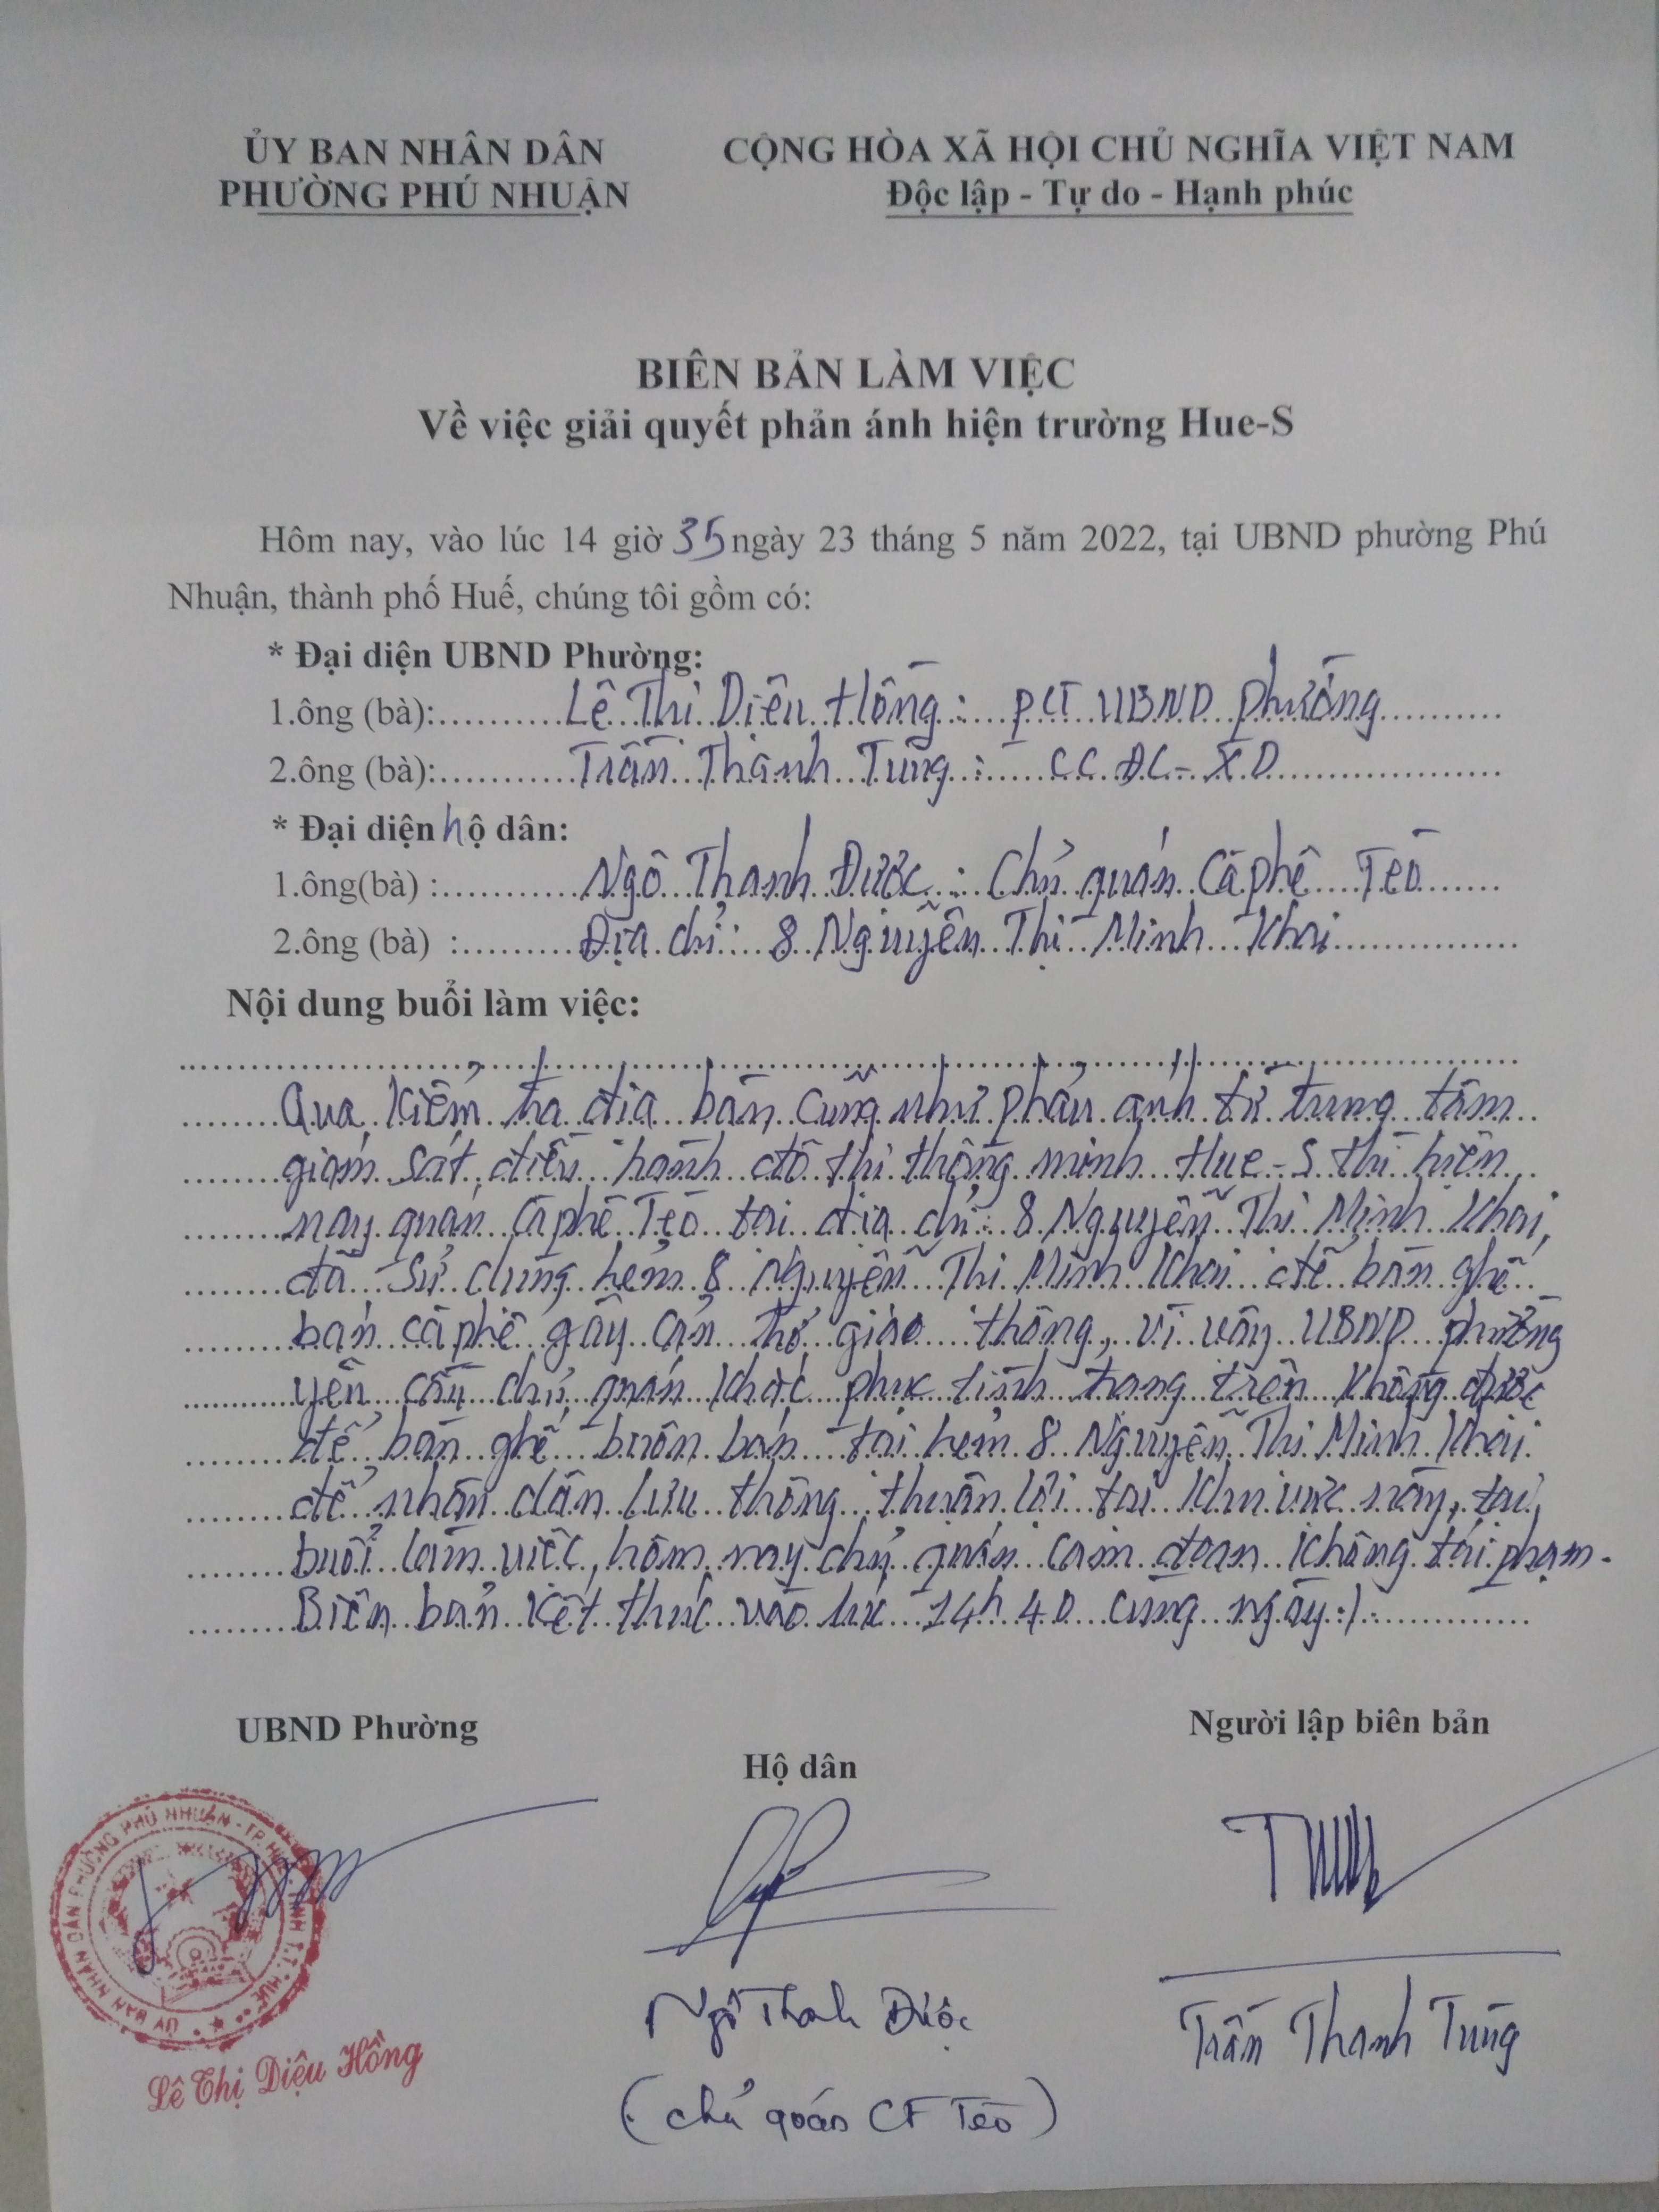 ỦY BAN NHÂN DÂN
PHƯỜNG PHÚ NHUẬN
CỘNG HÒA XÃ HỘI CHỦ NGHĨA VIỆT NAM
Độc lập - Tự do - Hạnh phúc
BIÊN BẢN LÀM VIỆC
Về việc giải quyết phản ánh hiện trường Hue-S
Hôm nay, vào lúc 14 giờ 35 ngày 23 tháng 5 năm 2022, tại UBND phường Phú
Nhuận, thành phố Huế, chúng tôi gồm có:
* Đại diện UBND Phường:
1.ông (bà):..........Lê Thị Diệu Hồng : PCT UBND phường..........
2.ông (bà):..........Trần Thanh Tùng : CC ĐC - XD..........
* Đại diện hộ dân:
1.ông(bà) :..........Ngô Thanh Được : Chủ quán Cà phê Tèo..........
2.ông (bà) :..........Địa chỉ : 8 Nguyễn Thị Minh Khai..........
Nội dung buổi làm việc:
Qua kiểm tra địa bàn cũng như phản ánh từ trung tâm
giám sát, điều hành đô thị thông minh Hue-S thì hiện
nay quán Cà phê Tèo tại địa chỉ 8 Nguyễn Thị Minh Khai,
đã sử dụng hẻm 8 Nguyễn Thị Minh Khai để bàn ghế
bán cà phê gây cản trở giao thông, vì vậy UBND phường
yêu cầu chủ quán khắc phục tình trạng trên không được
để bàn ghế buôn bán tại hẻm 8 Nguyễn Thị Minh Khai
để nhân dân lưu thông thuận lợi tại khu vực này, tại
buổi làm việc, hôm nay chủ quán cam đoan không tái phạm.
Biên bản kết thúc vào lúc 14h 40 cùng ngày./.
UBND Phường
Hộ dân
Người lập biên bản
ỦY BAN NHÂN DÂN PHƯỜNG PHÚ NHUẬN - TP. HUẾ TỈNH T.T. HUẾ
Lê Thị Diệu Hồng
Ngô Thanh Được
(chủ quán CF Tèo)
Trần Thanh Tùng